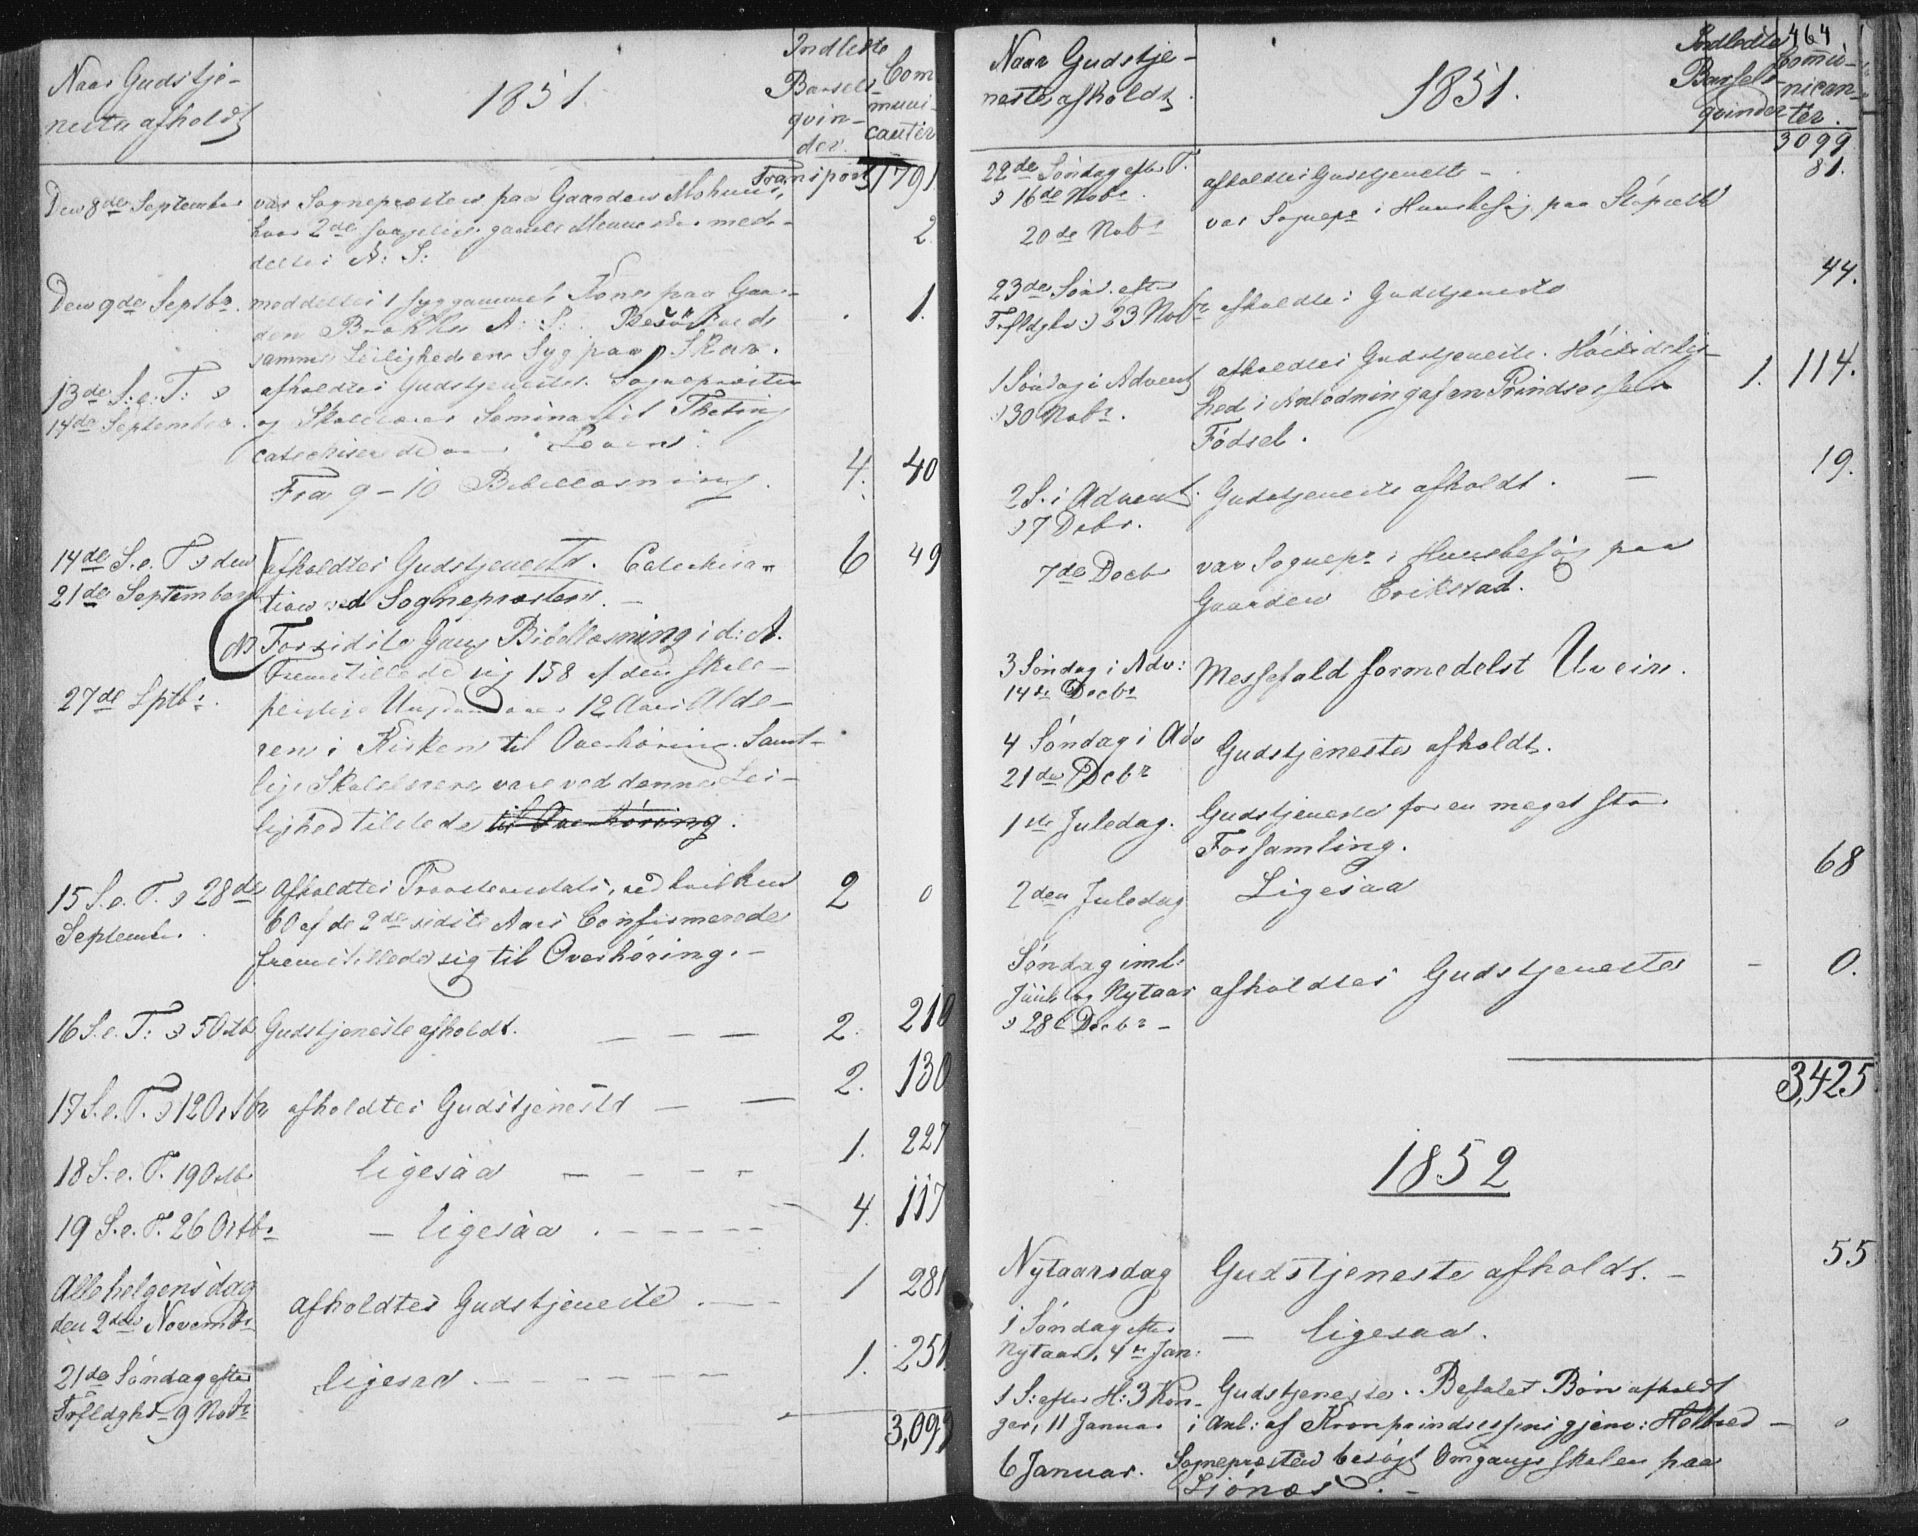 Naar Gudstje-
neste afholdt
1851.
Indledte
Barsel-
qvin-
der.
Com
muni-
canter
Transport 1791
Den 8de September var Sognepræsten paa Gaarden
hvor 2de gamle Mennesker med-
deltes A: S:
2
Den 9de Septbr. meddeltes 1 Kone paa Gaar-
den A: S: Besög
samme Leilighed en Syg paa
1.
13de S: e: T: d
14de September.
afholdtes Gudstjeneste. Sognepræsten
og Skolelærer Seminarist
catechiserede over
Fra 9-10 Bibellæsning.
4. 40
14de S. e. T d den
21de September
afholdtes Gudstjeneste. Catechisa-
tion ved Sognepræsten.
6 49
NB Forsidste Gang Bibellæsning i d: A.
27de Sptbr.
Fremstillede sig 158 af den skole-
pligtige Ungdom over 12 Aars Alde-
ren i Kirken til Overhøring. Samt-
lige Skolelærere vare ved denne Lei-
lighed tilstede til Overhøring.
15 S. e. T. d 28de
Septembr.
Afholdtes Provstevisitats, ved hvilken
60 af de 2de sidste Aars Confirmerede
fremstillede sig til Overhøring. -
2 0
16 S. e. T: d 5 Octb Gudstjeneste afholdt. — — — 2. 210
17 S. e. T. d 12 Octbr afholdtes Gudstjeneste — — 2. 130
18 S. e. T. 19 Octb ligesaa — — — — 1. 227
19 S. e. T. 26 Octbr - ligesaa . — — — — 4. 117
Allehelgensdag
den 2den Novembr
afholdtes Gudstjeneste . — — 1 281
21de Søndag efter
Trfldghd 9 Novbr
ligesaa . — — — — — — 1. 251
3,099
464
Naar Gudstje-
neste afholdt
1851.
Indledte
Barsel-
qvinder
Comu-
nican-
ter.
3099
22de Søndag efter T.
d 16de Novbr.
afholdtes Gudstjeneste -
81.
20de Novbr var Sognepr i Huusbesøg paa
23de Sønd. efter
Trfldghd d 23 Novbr afholdtes Gudstjeneste
44.
1 Søndag i Advent
d 30 Novbr.
afholdtes Gudstjeneste. Høitidelig-
hed i Anledning af en Prindsesses
Fødsel.
1. 114.
2 S. i Advent.
d 7 Debr.
Gudstjeneste afholdt. —
19.
7de Decbr var Sognepr i Huusbesøg paa
Gaarden Erikstad.
3 Søndag i Adv:
14de Decbr
Messefald formedelst Uveir.
4 Søndag i Adv
21de Decbr
Gudstjeneste afholdt.
1ste Juledag. Gudstjeneste for en meget stor
Forsamling.
2den Juledag Ligesaa
68
Søndag iml:
Juul og Nytaar
d 28 Decbr -
afholdtes Gudstjeneste - 0.
3,425
1852
Nytaarsdag Gudstjeneste afholdt. -
55
1 Søndag efter
Nytaar, 4de Jan:
- ligesaa.
1 S: efter H: 3 Kon-
ger, 11 Januar
Gudstjeneste. Befalet Bøn afholdt
i Anl: af Kronprindsessens gjenv: Helbred — 0
6 Januar. Sognepræsten besøgt Omgangsskolen paa
Liönæs. -